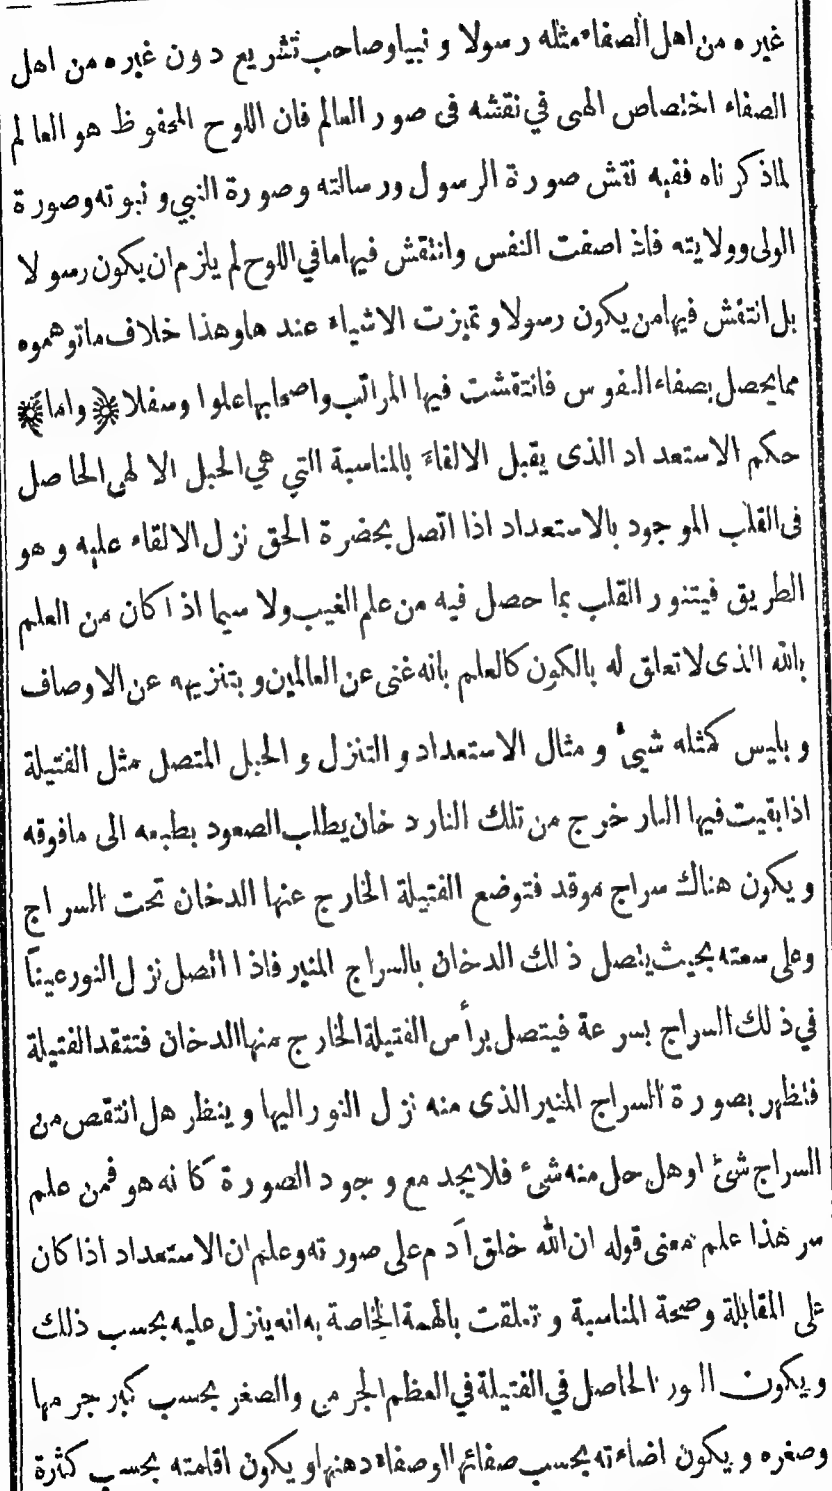 غيره من اهل الصفاء مثله رسولا ونبيا وصاحب تشريع دون غيره من اهل
الصفاء اختصاص الهى في نقشه فى صور العالم فان اللوح المحفوظ هو العالم
لما ذكرناه ففيه نقش صورة الرسول ورسالته وصورة النبي ونبوته وصورة
الولى وولايته فاذ اصفت النفس وانتقش فيها ما في اللوح لم يلزم ان يكون رسولا
بل انتقش فيها من يكون رسولا وتميزت الاشياء عندها وهذا خلاف ما توهموه
مما يحصل بصفاء النفوس فانتقشت فيها المراتب واصحابها علوا وسفلا ﴿ واما ﴾
حكم الاستعداد الذى يقبل الالقاءَ بالمناسبة التي هي الحبل الالهى الحاصل
فى القلب الموجود بالاستعداد اذا اتصل بحضرة الحق نزل الالقاء عليه وهو
الطريق فيتنور القلب بما حصل فيه من علم الغيب ولا سيما اذا كان من العلم
بالله الذى لا تعلق له بالكون كالعلم بانه غنى عن العالمين و بتنزيهه عن الاوصاف
و بليس كمثله شيئ و مثال الاستعداد و التنزل و الحبل المتصل مثل الفتيلة
اذا بقيت فيها النار خرج من تلك النار دخان يطلب الصعود بطبعه الى ما فوقه
و يكون هناك سراج موقد فتوضع الفتيلة الخارج عنها الدخان تحت السراج
وعلى سمته بحيث يتصل ذلك الدخان بالسراج المنير فاذا اتصل نزل النور عيناً
في ذلك السراج بسرعة فيتصل برأس الفتيلة الخارج منها الدخان فتتقد الفتيلة
فتظهر بصورة السراج المنير الذى منه نزل النور اليها و ينظر هل انتقص من
السراج شئ او هل حل منه شئ فلا يجد مع وجود الصورة كانه هو فمن علم
سر هذا علم معنى قوله ان الله خلق آدم على صورته وعلم ان الاستعداد اذا كان
على المقابلة وصحة المناسبة و تعلقت بالهمة الخاصة به انه ينزل عليه بحسب ذلك
ويكون النور الحاصل في الفتيلة في العظم الجرمى والصغر بحسب كبر جرمها
وصغره و يكون اضاءته بحسب صفائها او صفاء دهنها و يكون اقامته بحسب كثرة